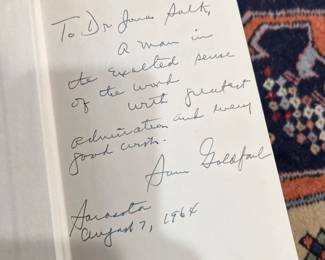 To Dr Jonas Salk,
A man in
the exalted sense
of the word
with greatest
admiration and every
good wish.
Sam Goldfarb
Sarasota
August 7, 1964